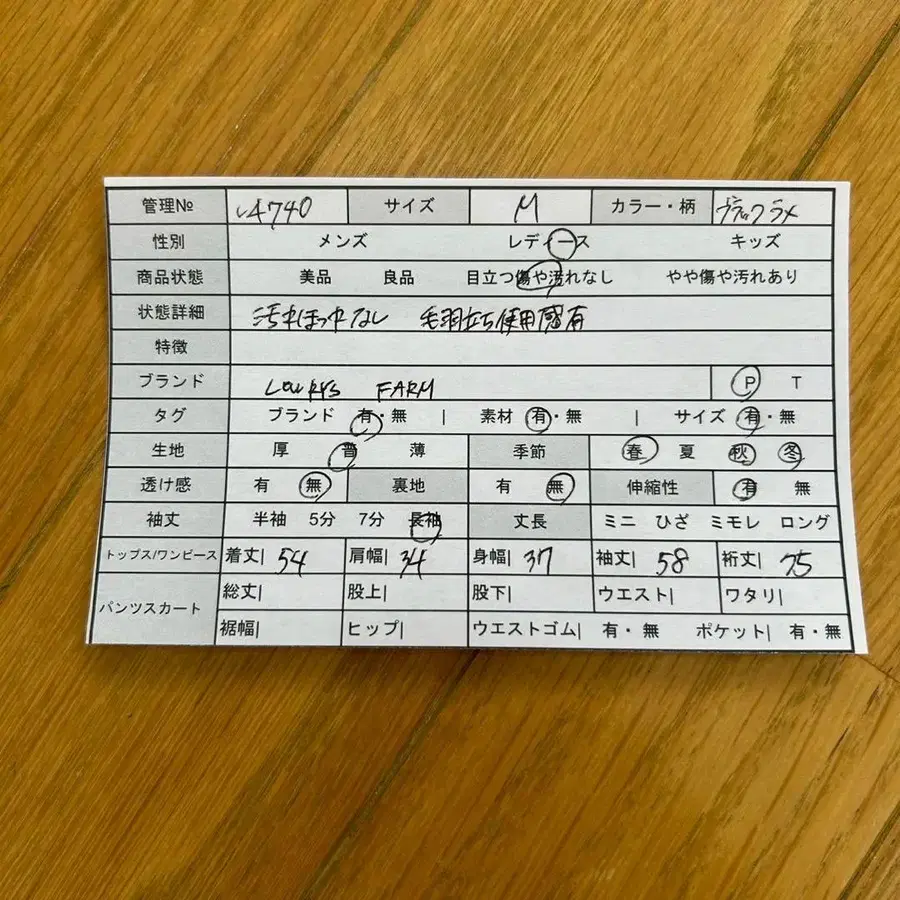 管理№ 4740 サイズ M カラー・柄 ラメ
性別 メンズ レディース キッズ
商品状態 美品 良品 目立つ傷や汚れなし やや傷や汚れあり
状態詳細 汚れほつれなし 毛羽立ち使用感有
特徴
ブランド LOWRYS FARM P T
タグ ブランド 有・無 | 素材 有・無 | サイズ 有・無
生地 厚 普 薄 季節 春 夏 秋 冬
透け感 有 無 裏地 有 無 伸縮性 有 無
袖丈 半袖 5分 7分 長袖 丈長 ミニ ひざ ミモレ ロング
トップス/ワンピース 着丈| 54 肩幅| 34 身幅| 37 袖丈| 58 裄丈| 75
パンツスカート 総丈| 股上| 股下| ウエスト| ワタリ|
裾幅| ヒップ| ウエストゴム| 有・無 ポケット| 有・無